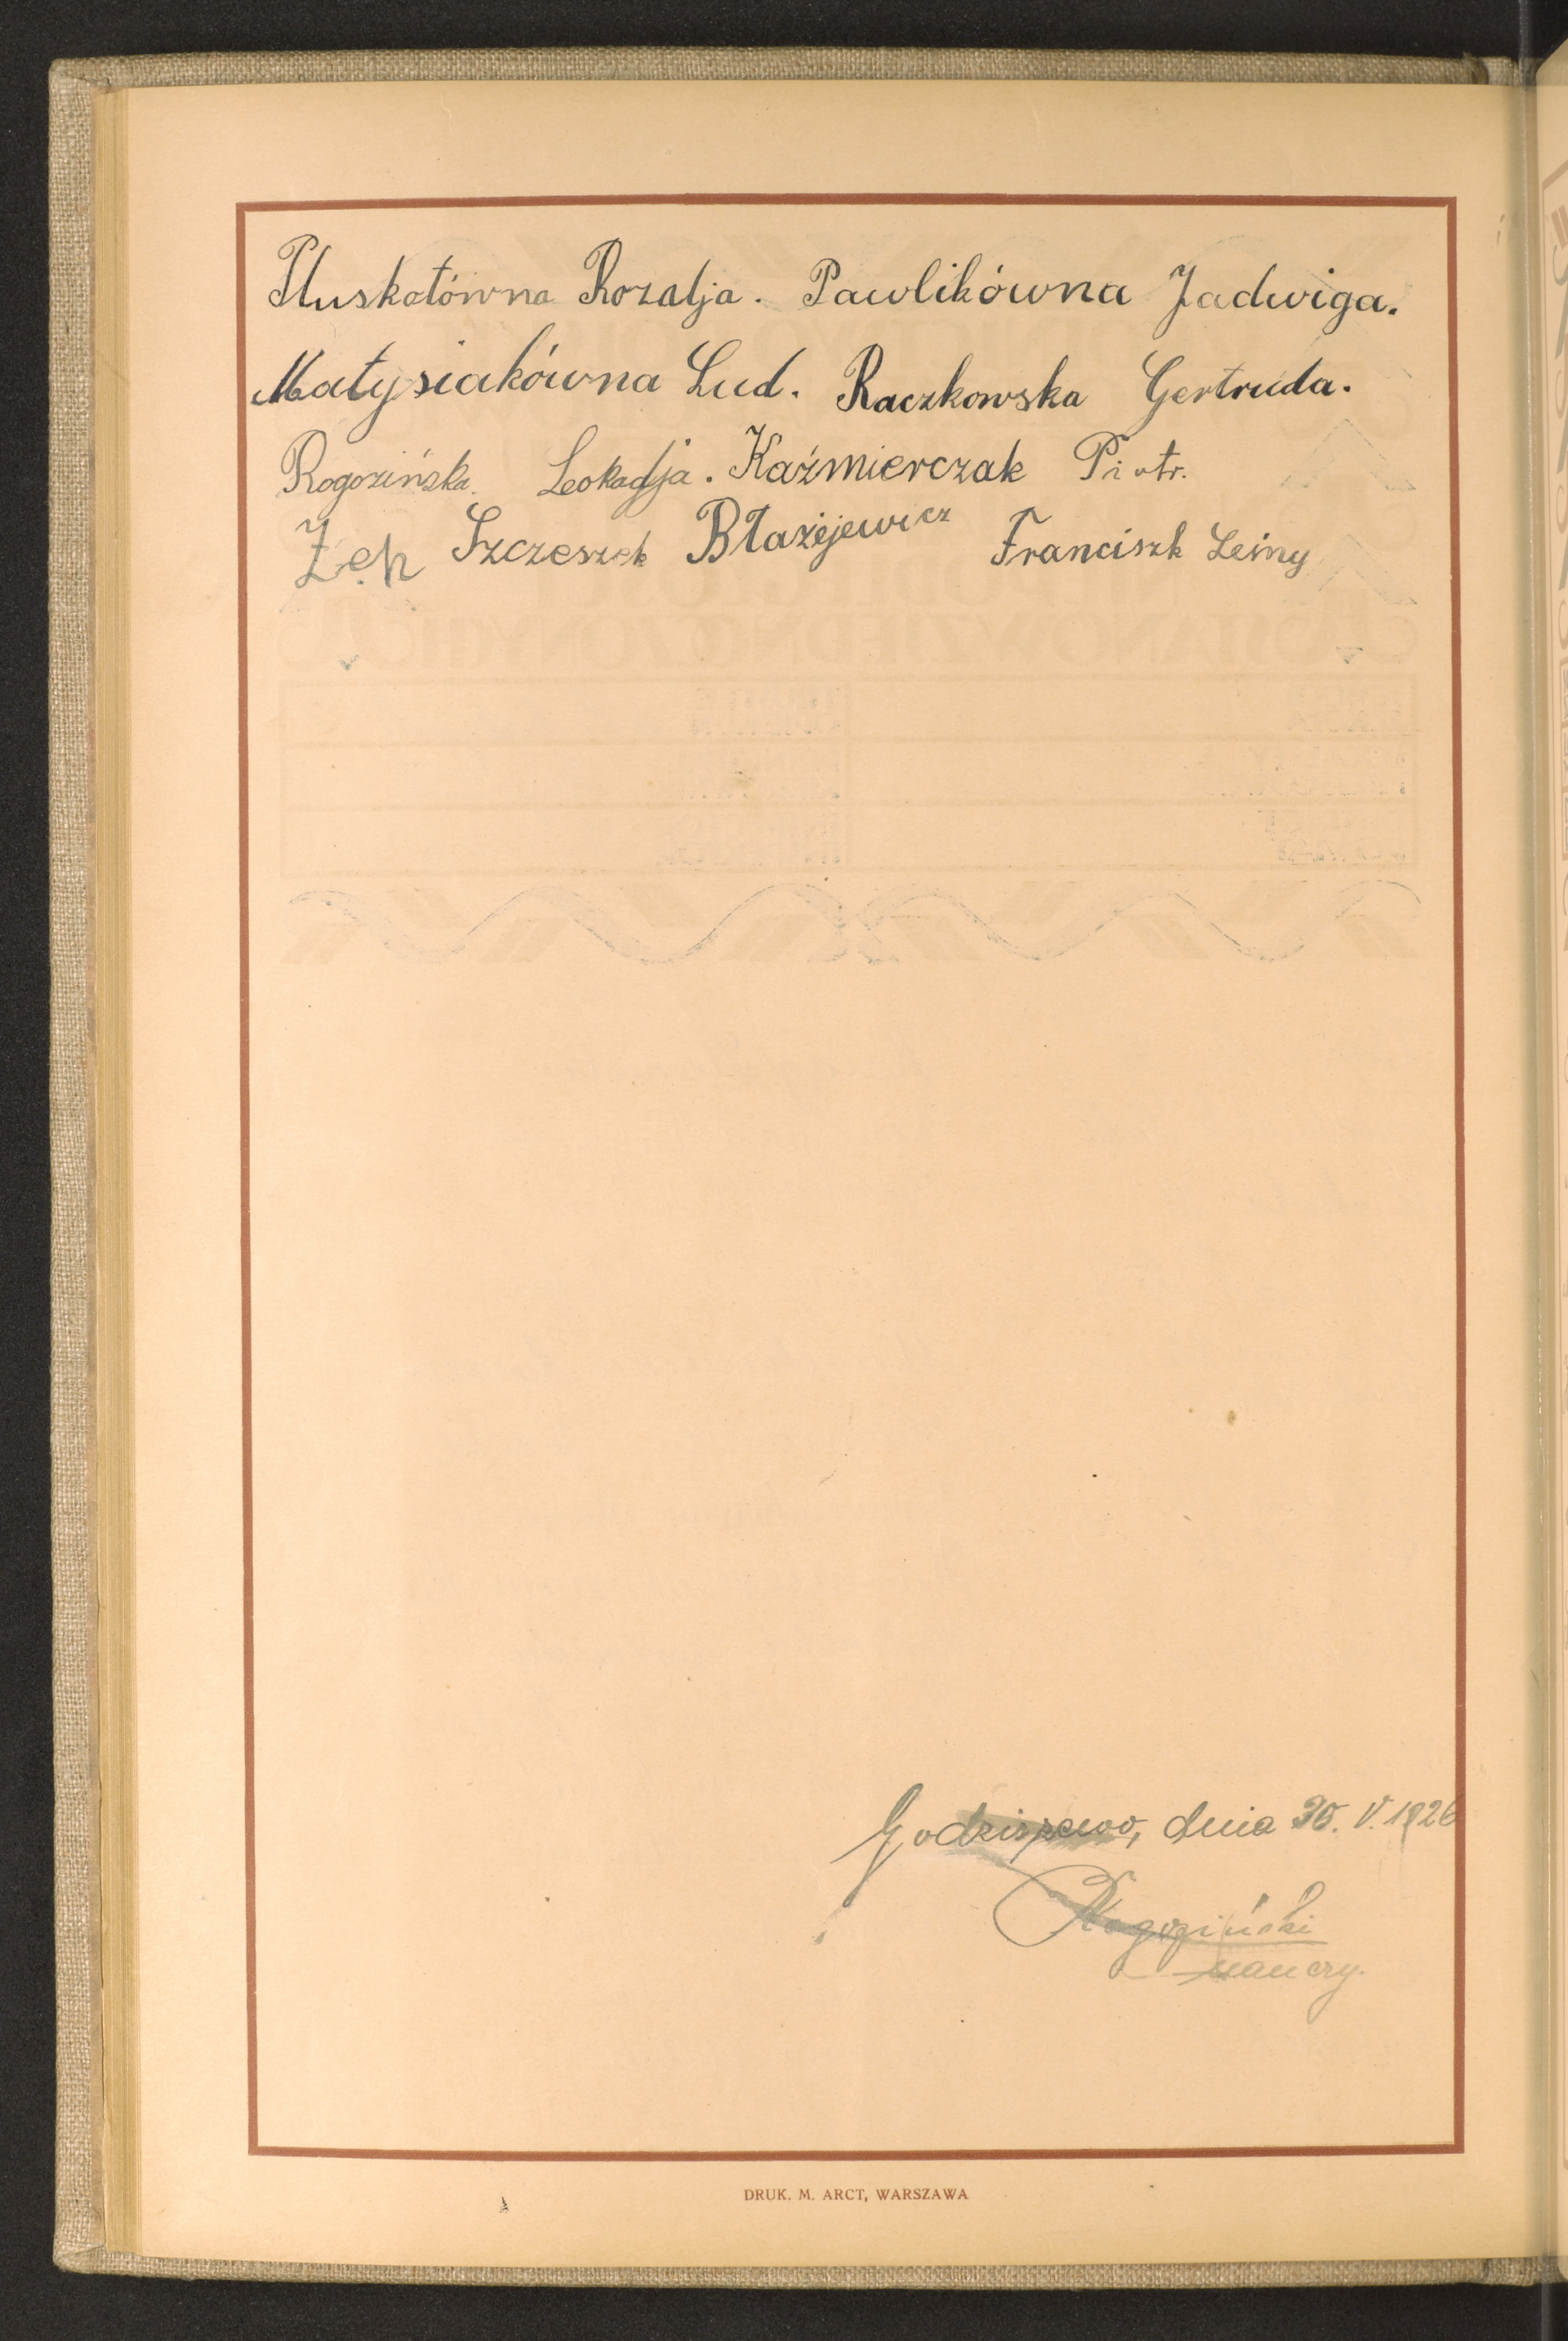 Pluskotówna Rozalja. Pawlikówna Jadwiga.
Matysiakówna Lud. Raczkowska Gertruda.
Rogozińska Leokadja. Kaźmierczak Piotr.
Szczeszek Błażejewicz Franciszk Leśny
dnia 30. V. 1926
Rogoziński
nauczy.
DRUK. M. ARCT, WARSZAWA